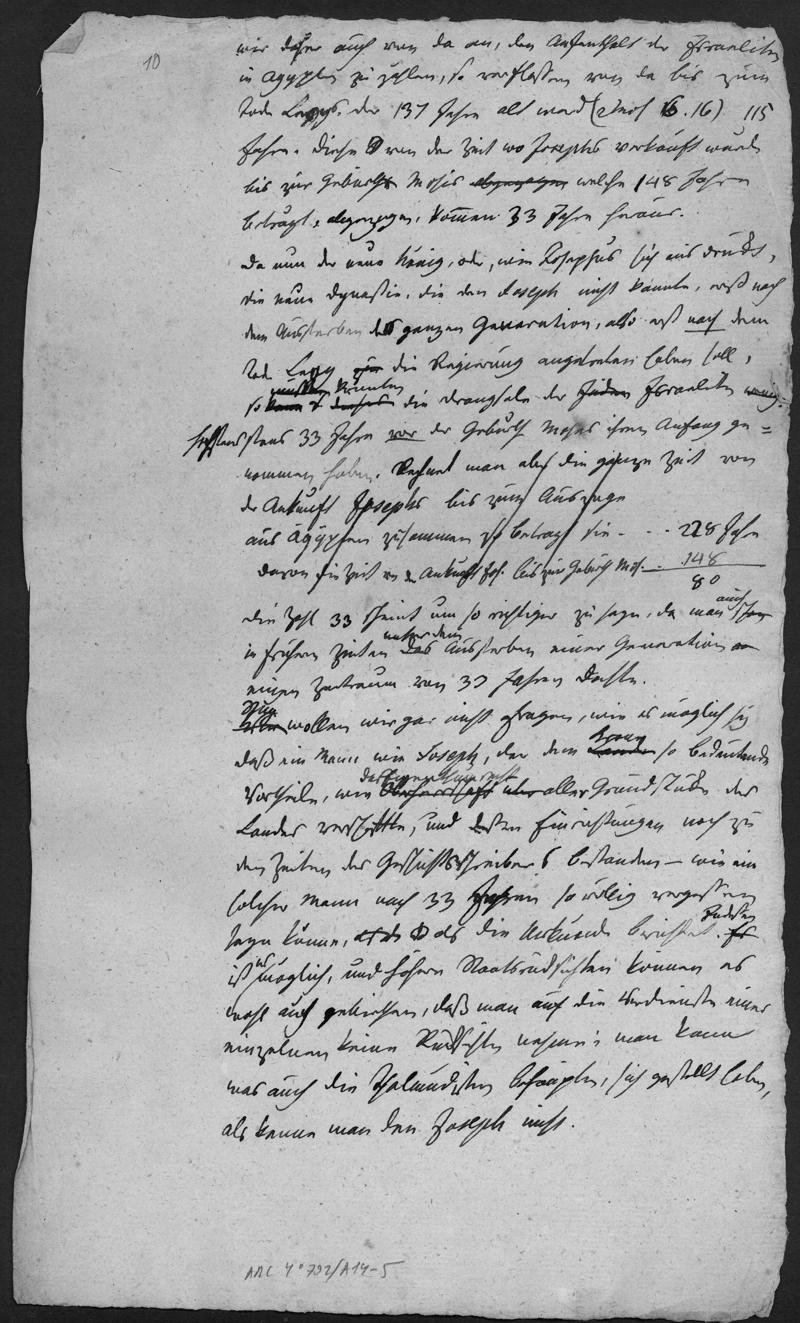 10
wir daher auch von da an, den Aufenthalt der Israeliten
in Ägypten zu zählen, so verflossen von da bis zum
Tode Levys, der 137 Jahre alt ward (2 Mos 6.16) 115
Jahre. Diese von der Zeit wo Josephs verkauft wurde
bis zur Geburth Mosis abgezogen welche 148 Jahre
beträgt, abgezogen, kommen 33 Jahre heraus.
Da nun der neue König, oder, wie Josephus sich ausdrückt,
die neue Dynastie, die den Joseph nicht kannte, erst nach
dem Aussterben der ganzen Generation, also erst nach dem
Tode Levy die Regierung angetreten haben soll,
müssten könnten
so kann dieses die Drangsale der Juden Israeliten
höchstens 33 Jahre vor der Geburth Moses ihren Anfang ge=
nommen haben. Rechnet man aber die ganze Zeit von
der Ankunft Josephs bis zum Auszuge
aus Ägypten zusammen so beträgt sie - - - 228 Jahre
davon die Zeit von der Ankunft Jos. bis zur Geburth Mos. - 148
80
auch
die Zahl 33 scheint um so richtiger zu seyn, da man schon
unter dem
in frühern Zeiten das Aussterben einer Generation
einen Zeitraum von 33 Jahren dachte.
Nun
wollen wir gar nicht fragen, wie es möglich sey
daß ein Mann wie Joseph, der dem Lande so bedeutende
das Eigenthumsrecht
Vortheile, wie Oberherrschaft über aller Grundstücke des
Landes verschaffte, und dessen Einrichtungen noch zu
den Zeiten des Geschichtsschreibers bestanden — wie ein
solcher Mann nach 33 Jahren so völlig vergessen
Indessen
seyn könne, als die Urkunde berichtet. Es
ist möglich, und höhere Staatsrücksichten können es
wohl auch gebiethen, daß man auf die Verdienste eines
einzelnen keine Rücksichten nehme; man kann
was auch die Thalmudisten behaupten, sich gestellt haben,
als kenne man den Joseph nicht.
ARC 4° 792/A14-5